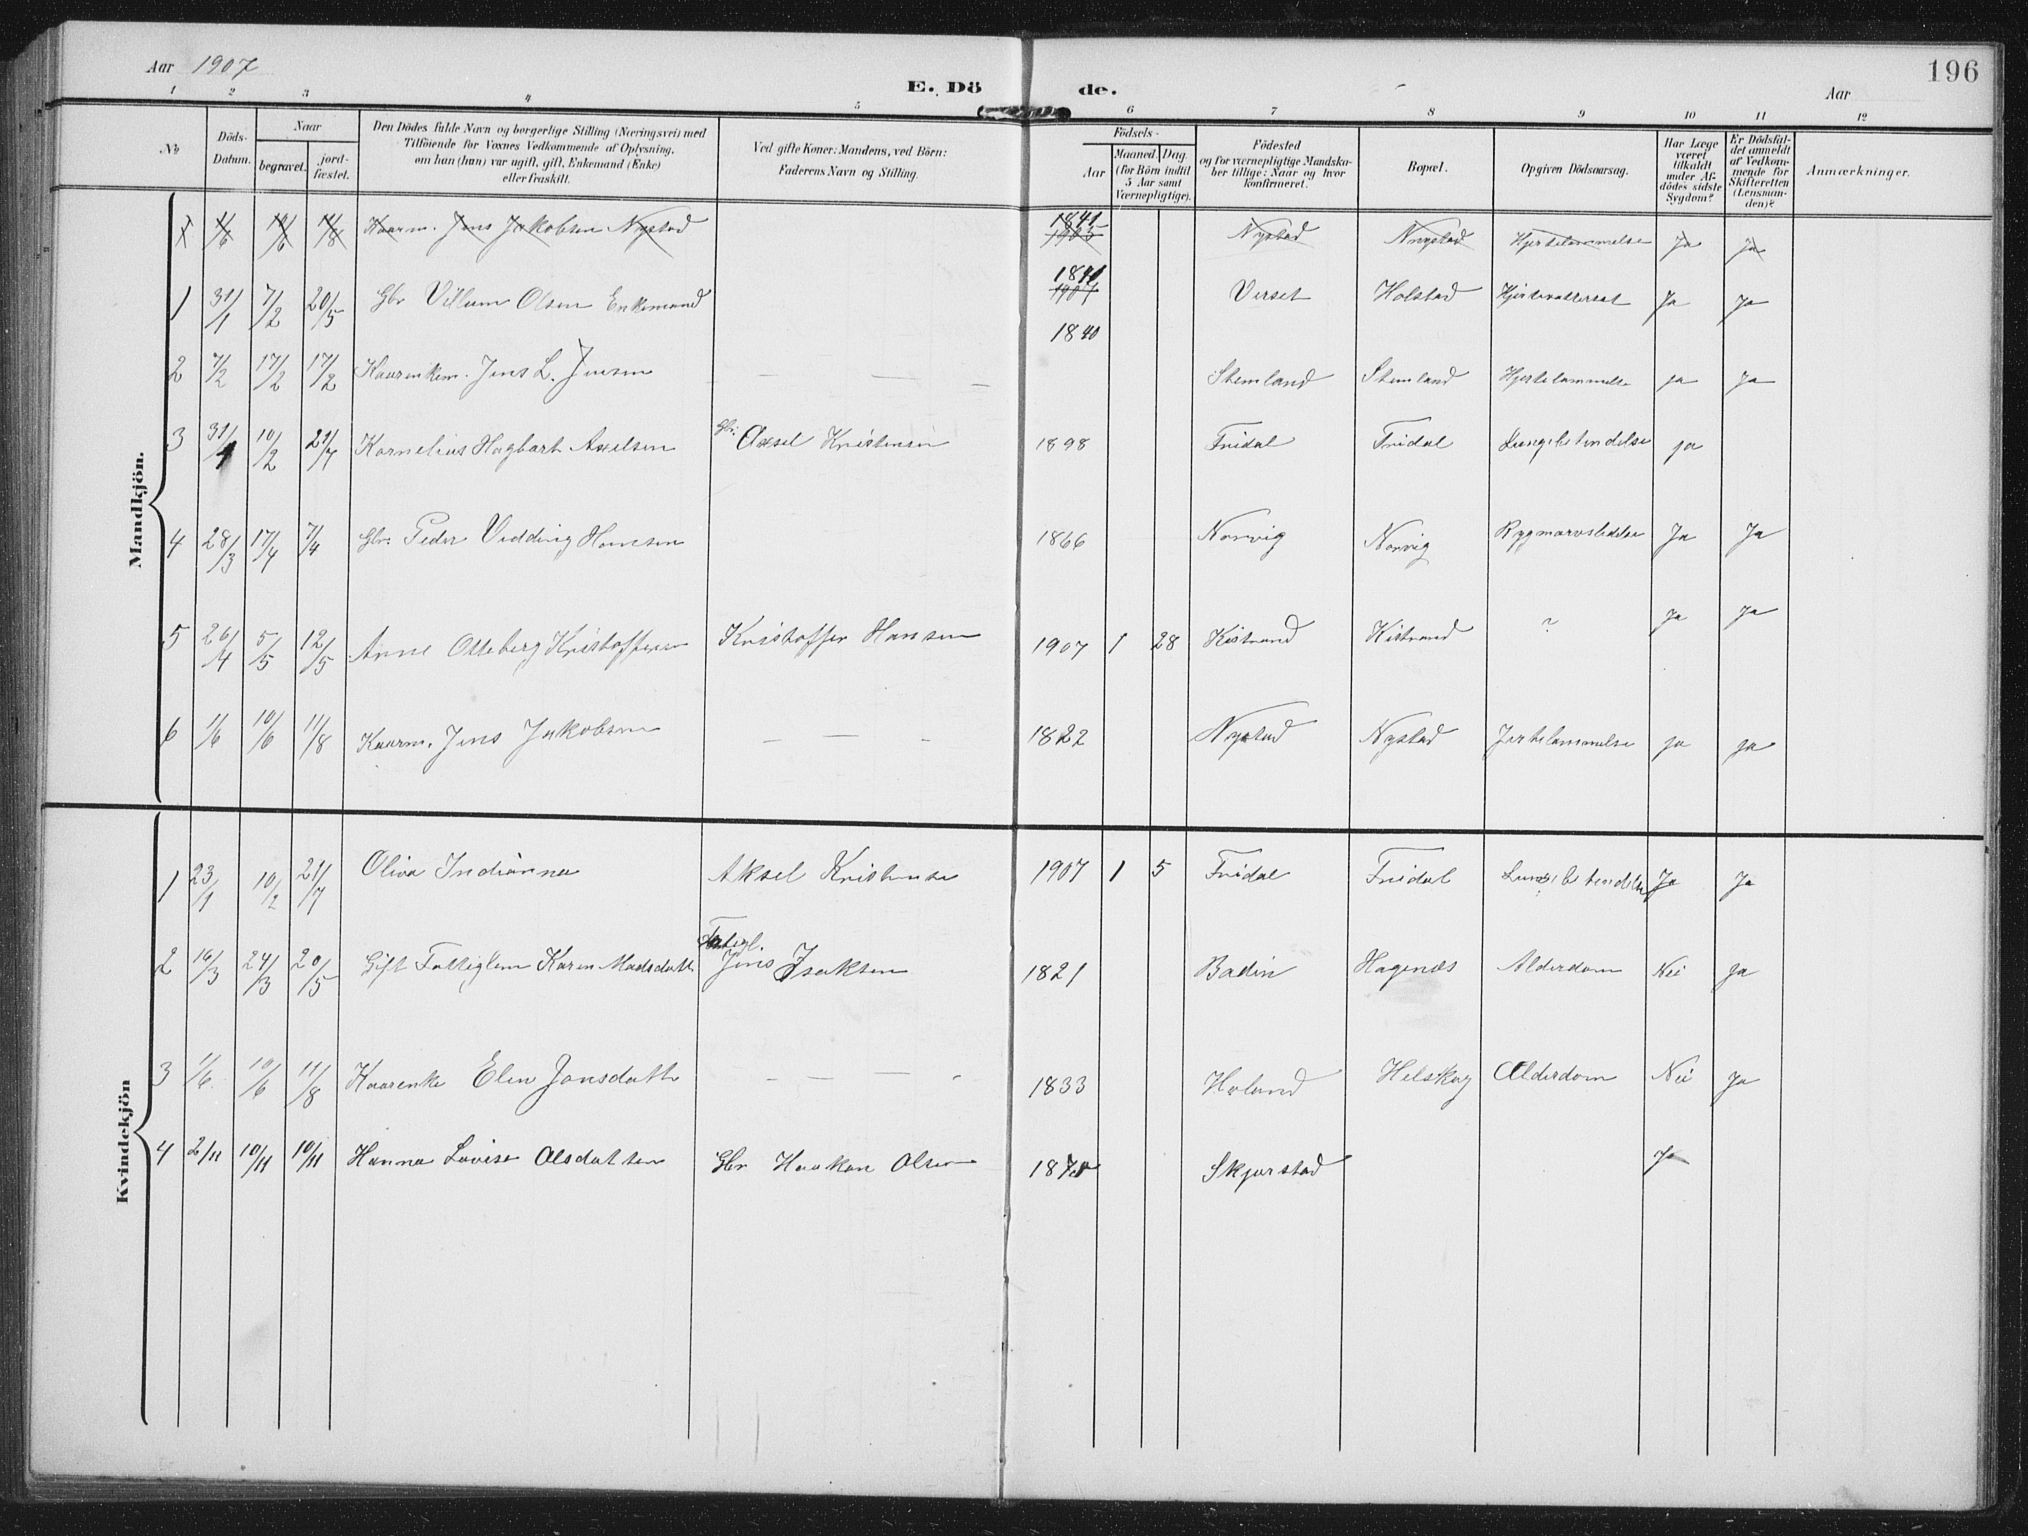 Aar 1907
E. Dö de.
Aar
196
1 2 3 4 5 6 7 8 9 10 11 12
No
Döds-Datum.
Naar
begravet.
jord-fæstet.
Den Dödes fulde Navn og borgerlige Stilling (Næringsvei) med
Tilföiende for Voxnes Vedkommende af Oplysning,
om han (hun) var ugift, gift, Enkemand (Enke)
eller fraskilt.
Ved gifte Koner: Mandens, ved Börn:
Faderens Navn og Stilling.
Födsels-
Aar
Maaned. Dag.
(for Börn indtil
5 Aar samt
Værnepligtige).
Födested
og for værnepligtige Mandska-
ber tillige: Naar og hvor
konfirmeret.
Bopæl.
Opgiven Dödsaarsag.
Har Læge
været
tilkaldt
under Af-
dödes sidste
Sygdom?
Er Dödsfal-
det anmeldt
af Vedkom-
mende for
Skifteretten
(Lensman-
den)?
Anmærkninger.
Mandkjön.
1 1/6 10/6 11/8 Kaarm. Jens Jakobsen Nystad 1841 Nystad Nystad Hjertelammelse Ja Ja
1 31/1 7/2 20/5 Gbr Villum Olsen Enkemand 1841 1907 Verset Holstad Ja Ja
1840
2 7/2 17/2 17/2 Kaarenkem. Jens L. Jensen — — — Stemland Stemland Hjertelammelse ja Ja
3 31/1 10/2 21/7 Kornelius Hagbart Axelsen Gbr: Axsel Kristensen 1898 Fridal Fridal Lungebetendelse ja
4 28/3 17/4 7/4 Gbr: Peder Vedding Hansen 1866 Norvig Norvig Rygmarvslidelse Ja Ja
5 26/4 5/5 12/5 Anne Otteberg Kristoffersen Kristoffer Hansen 1907 1 28 Kistrand Kistrand ? Ja Ja
6 1/6 10/6 11/8 Kaarm. Jens Jakobsen — — - 1822 Nystad Nystad Jertelammelse ja ja
Kvindekjön
1 23/1 10/2 21/7 Oliva Indianna Aksel Kristensen 1907 1 5 Fridal Fridal Lungebetendelse Ja Ja
2 16/3 24/3 20/5 Gift Fattiglem Karen Madsdatt Fatigl. Jens Isaksen 1821 Badin Hagenæs Alderdom Nei ja
3 1/6 10/6 11/8 Kaarenke Elen Jonsdatt — — - 1833 Holand Helskog Alderdom Nei Ja
4 2/11 10/11 10/11 Hanna Lovise Olsdatten Gbr Haakon Olsen Skjerstad Ja